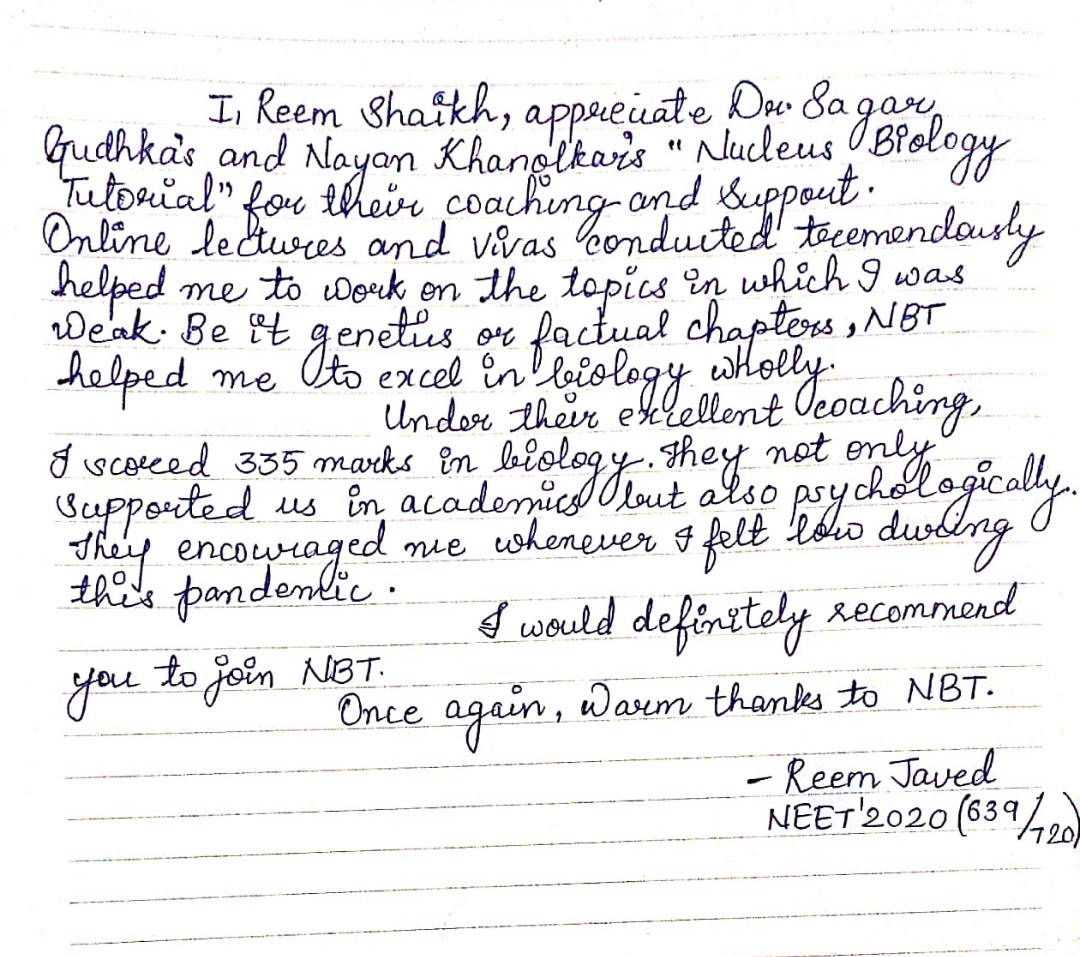 I, Reem Shaikh, appreciate Dr. Sagar
Gudhka's and Nayan Khanolkar's " Nucleus Biology
Tutorial" for their coaching and support.
Online lectures and vivas conducted tremendously
helped me to work on the topics in which I was
weak. Be it genetics or factual chapters, NBT
helped me to excel in biology wholly.
Under their excellent coaching,
I scored 335 marks in biology. They not only
supported us in academics but also psychologically.
They encouraged me whenever I felt low during
this pandemic.
I would definitely recommend
you to join NBT.
Once again, Warm thanks to NBT.
- Reem Javed
NEET'2020 (639/720)